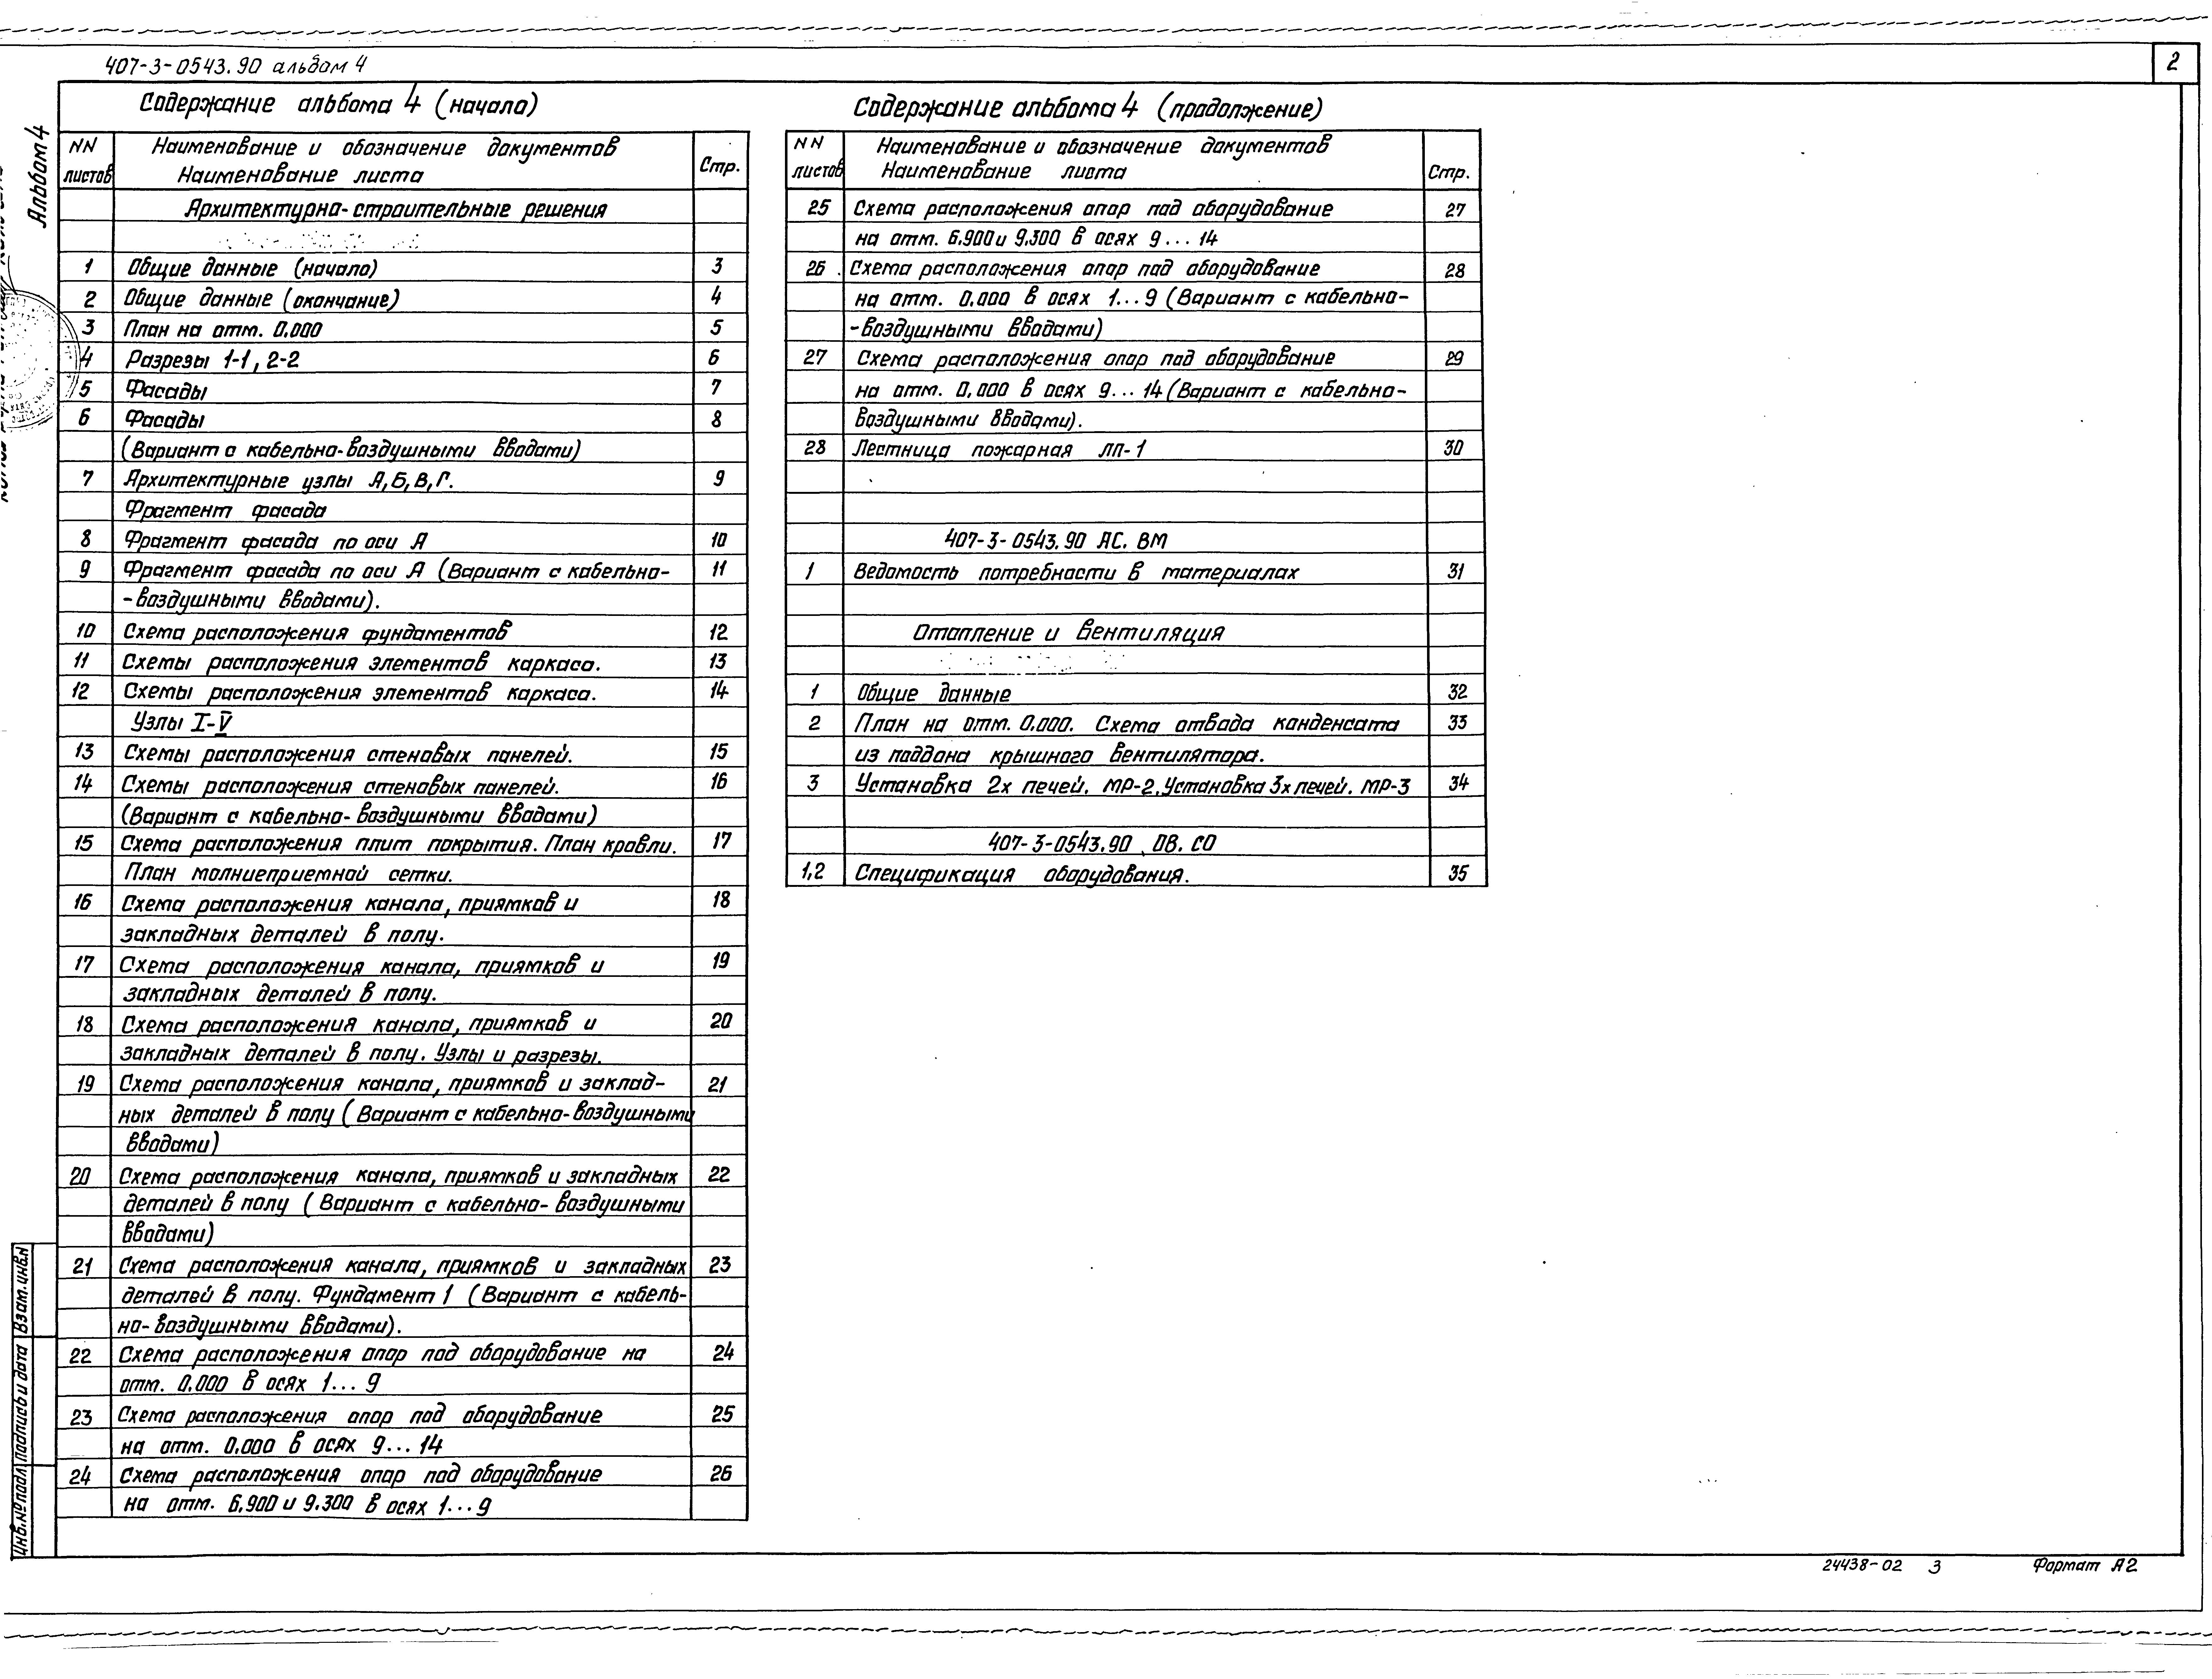 407-3-0543.90 альбом 4
2
Альбом 4
Содержание альбома 4 (начало)
NN листов
Наименование и обозначение документов
Наименование листа
Стр.
Архитектурно-строительные решения
1 Общие данные (начало) 3
2 Общие данные (окончание) 4
3 План на отм. 0.000 5
4 Разрезы 1-1, 2-2 6
5 Фасады 7
6 Фасады 8
(Вариант с кабельно-воздушными вводами)
7 Архитектурные узлы А,Б,В,Г. 9
Фрагмент фасада
8 Фрагмент фасада по оси А 10
9 Фрагмент фасада по оси А (Вариант с кабельно- 11
-воздушными вводами).
10 Схема расположения фундаментов 12
11 Схемы расположения элементов каркаса. 13
12 Схемы расположения элементов каркаса. 14
Узлы I-V
13 Схемы расположения стеновых панелей. 15
14 Схемы расположения стеновых панелей. 16
(Вариант с кабельно-воздушными вводами)
15 Схема расположения плит покрытия. План кровли. 17
План молниеприемной сетки.
16 Схема расположения канала, приямков и 18
закладных деталей в полу.
17 Схема расположения канала, приямков и 19
закладных деталей в полу.
18 Схема расположения канала, приямков и 20
закладных деталей в полу. Узлы и разрезы.
19 Схема расположения канала, приямков и заклад- 21
ных деталей в полу (Вариант с кабельно-воздушными
вводами)
20 Схема расположения канала, приямков и закладных 22
деталей в полу (Вариант с кабельно-воздушными
вводами)
21 Схема расположения канала, приямков и закладных 23
деталей в полу. Фундамент 1 (Вариант с кабель-
но-воздушными вводами).
22 Схема расположения опор под оборудование на 24
отм. 0.000 в осях 1...9
23 Схема расположения опор под оборудование 25
на отм. 0.000 в осях 9...14
24 Схема расположения опор под оборудование 26
на отм. 6.900 и 9.300 в осях 1...9
Содержание альбома 4 (продолжение)
NN листов
Наименование и обозначение документов
Наименование листа
Стр.
25 Схема расположения опор под оборудование 27
на отм. 6.900 и 9.300 в осях 9...14
26 Схема расположения опор под оборудование 28
на отм. 0.000 в осях 1...9 (Вариант с кабельно-
-воздушными вводами)
27 Схема расположения опор под оборудование 29
на отм. 0.000 в осях 9...14 (Вариант с кабельно-
воздушными вводами).
28 Лестница пожарная ЛП-1 30
407-3-0543.90 АС. ВМ
1 Ведомость потребности в материалах 31
Отопление и вентиляция
1 Общие данные 32
2 План на отм. 0.000. Схема отвода конденсата 33
из поддона крышного вентилятора.
3 Установка 2х печей. МР-2. Установка 3х печей. МР-3 34
407-3-0543.90 ОВ. СО
1,2 Спецификация оборудования. 35
Инв.№ подл. Подпись и дата Взам. инв.N
24438-02 3 Формат А2